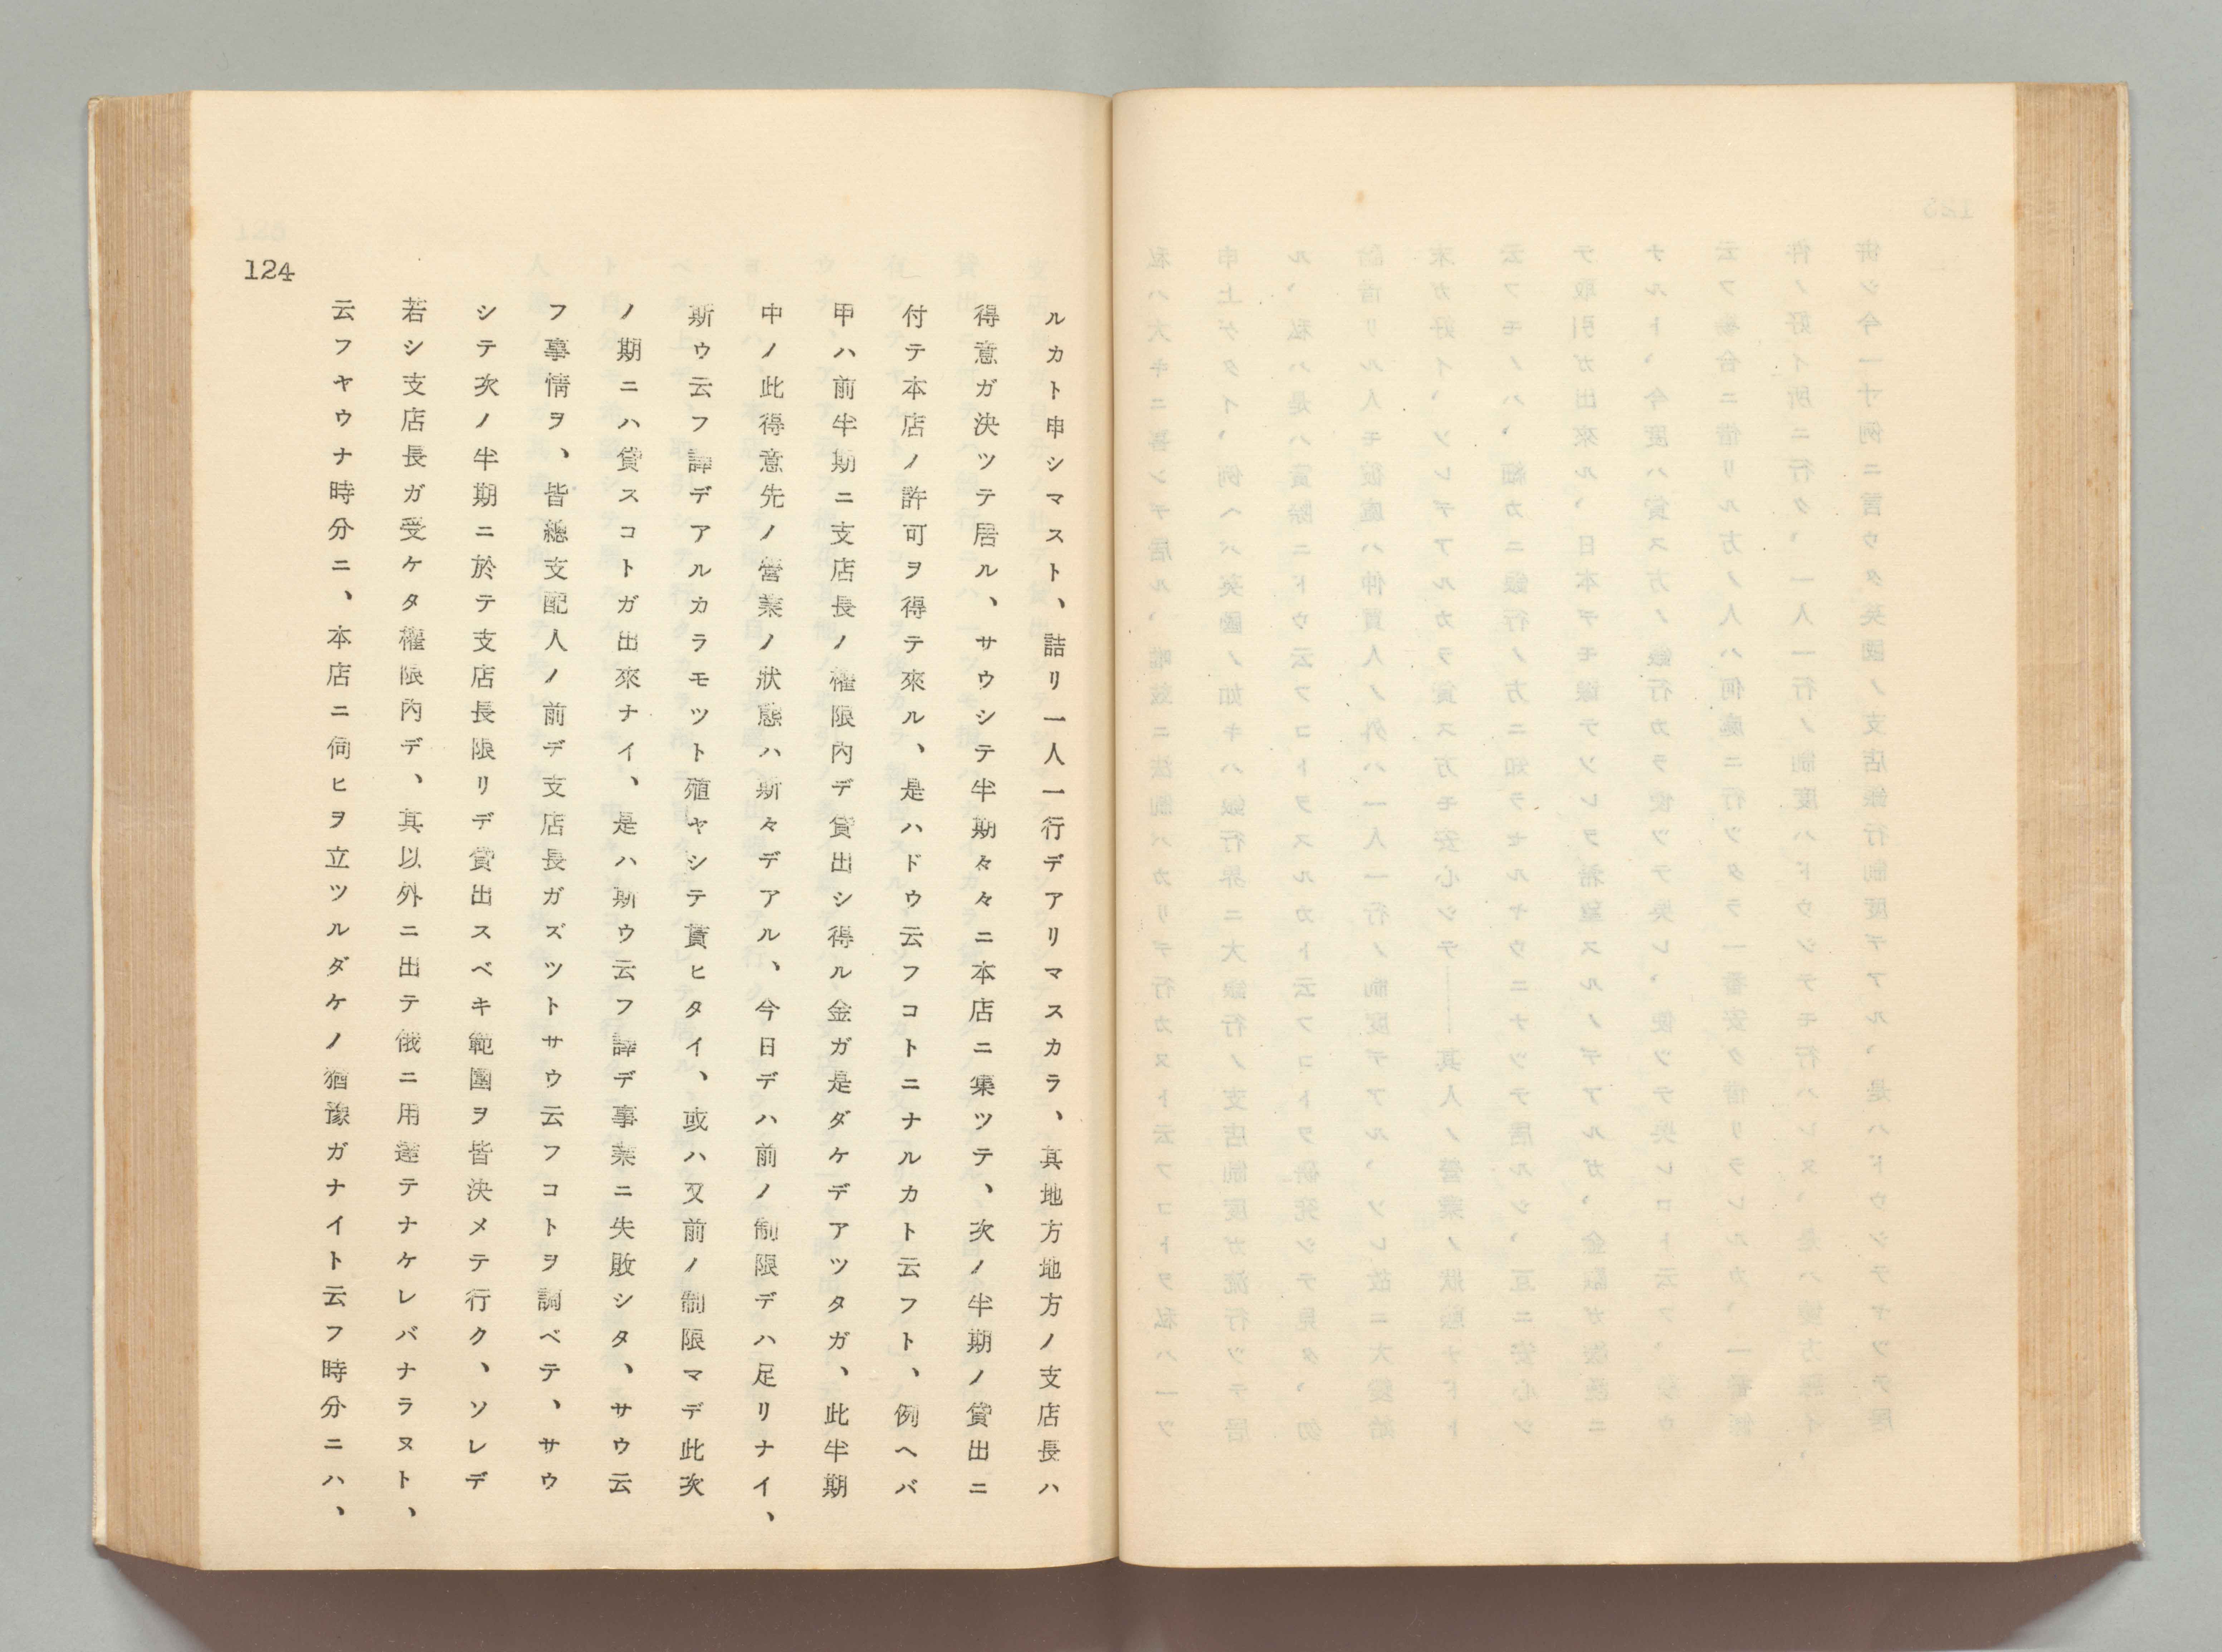 ルカト申シマスト、詰リ一人一行デアリマスカラ、其地方地方ノ支店長ハ
得意ガ決ツテ居ル、サウシテ半期々々ニ本店ニ集ツテ、次ノ半期ノ貸出ニ
付テ本店ノ許可ヲ得テ來ル、是ハドウ云フコトニナルカト云フト、例ヘバ
甲ハ前半期ニ支店長ノ權限內デ貸出シ得ル金ガ是ダケデアツタガ、此半期
中ノ此得意先ノ營業ノ狀態ハ斯々デアル、今日デハ前ノ制限デハ足リナイ、
斯ウ云フ譯デアルカラモツト殖ヤシテ貰ヒタイ、或ハ又前ノ制限マデ此次
ノ期ニハ貸スコトガ出來ナイ、是ハ斯ウ云フ譯デ事業ニ失敗シタ、サウ云
フ事情ヲ、皆總支配人ノ前デ支店長ガズツトサウ云フコトヲ調ベテ、サウ
シテ次ノ半期ニ於テ支店長限リデ貸出スベキ範圍ヲ皆決メテ行ク、ソレデ
若シ支店長ガ受ケタ權限內デ、其以外ニ出テ俄ニ用達テナケレバナラヌト、
云フヤウナ時分ニ、本店ニ伺ヒヲ立ツルダケノ猶豫ガナイト云フ時分ニハ、
124